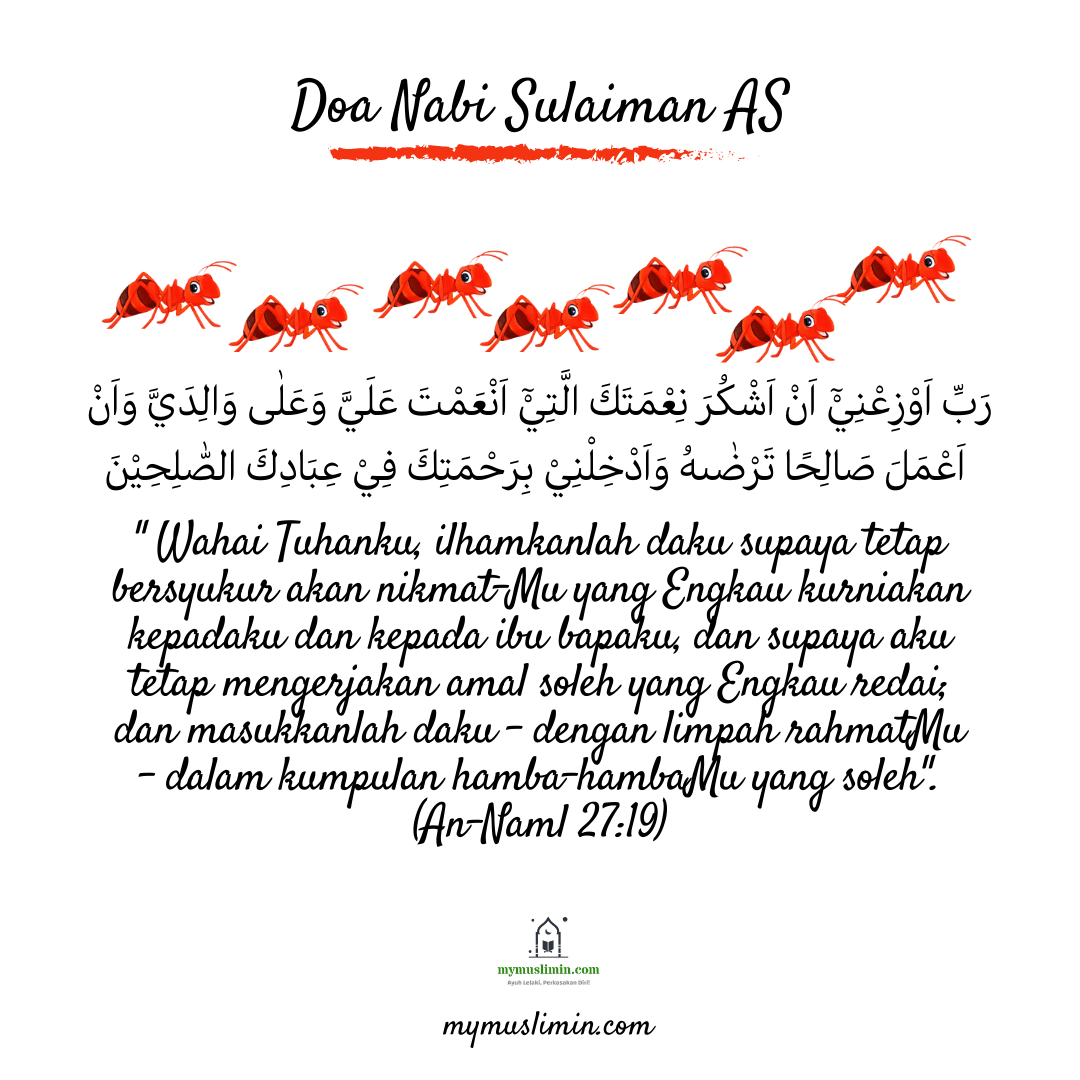 Doa Nabi Sulaiman AS
رَبِّ اَوْزِعْنِيْٓ اَنْ اَشْكُرَ نِعْمَتَكَ الَّتِيْٓ اَنْعَمْتَ عَلَيَّ وَعَلٰى وَالِدَيَّ وَاَنْ
اَعْمَلَ صَالِحًا تَرْضٰىهُ وَاَدْخِلْنِيْ بِرَحْمَتِكَ فِيْ عِبَادِكَ الصّٰلِحِيْنَ
" Wahai Tuhanku, ilhamkanlah daku supaya tetap
bersyukur akan nikmat-Mu yang Engkau kurniakan
kepadaku dan kepada ibu bapaku, dan supaya aku
tetap mengerjakan amal soleh yang Engkau redai;
dan masukkanlah daku – dengan limpah rahmatMu
– dalam kumpulan hamba-hambaMu yang soleh".
(An-Naml 27:19)
mymuslimin.com
Ayuh Lelaki, Perkasakan Diri!
mymuslimin.com